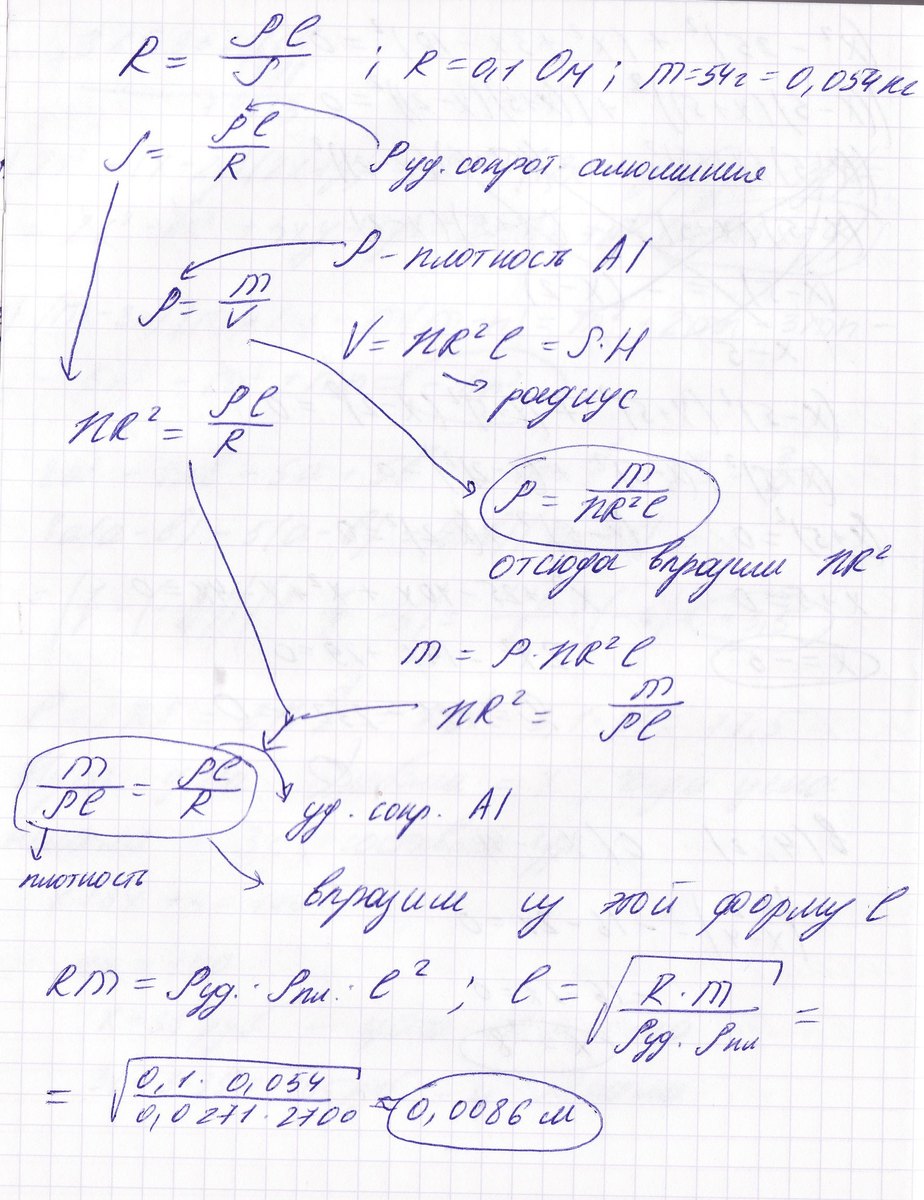 R = ρl/S ; R = 0,1 Ом ; m = 54г = 0,054 кг
S = ρl/R
ρ уд. сопрот. алюминия
ρ - плотность Al
ρ = m/V
V = πR² l = S·H
радиус
πR² = ρl/R
ρ = m/πR²l
отсюда вырazим πR²
m = ρ·πR²l
πR² = m/ρl
m/ρl = ρl/R
уд. сопр. Al
плотность
выразим из этой форму l
Rm = ρуд. · ρпл. · l² ; l = √(R·m/ρуд. · ρпл) =
= √(0,1 · 0,054/0,0271 · 2700) = 0,0086 м